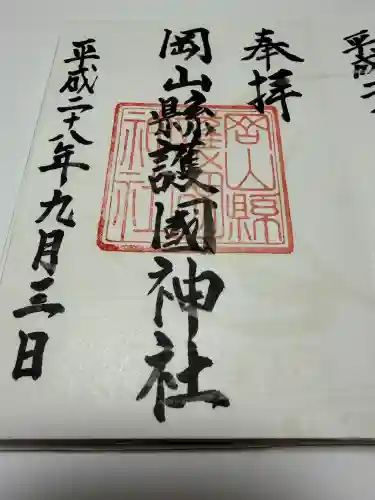 奉拝
岡山縣護國神社
平成二十八年九月三日
岡山縣
護國
神社